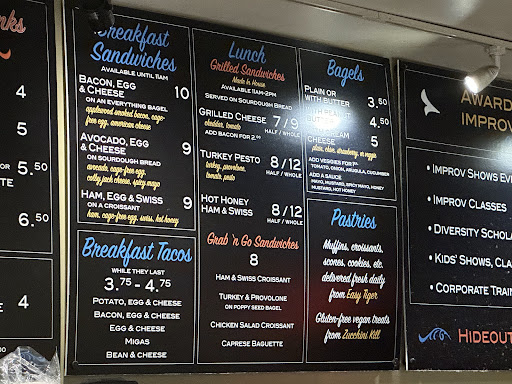 nks
4
4
5.50
6.50
4
OR
TE
Breakfast
Sandwiches
AVAILABLE UNTIL 11AM
BACON, EGG
& CHEESE 10
ON AN EVERYTHING BAGEL
applewood smoked bacon, cage-
free egg, american cheese
AVOCADO, EGG
& CHEESE 9
ON SOURDOUGH BREAD
avocado, cage-free egg,
colby jack cheese, spicy mayo
HAM, EGG & SWISS 9
ON A CROISSANT
ham, cage-free egg, swiss, hot honey
Breakfast Tacos
WHILE THEY LAST
3.75 - 4.75
POTATO, EGG & CHEESE
BACON, EGG & CHEESE
EGG & CHEESE
MIGAS
BEAN & CHEESE
Lunch
Grilled Sandwiches
Made In House
AVAILABLE 11AM-2PM
SERVED ON SOURDOUGH BREAD
GRILLED CHEESE 7/9
cheddar, tomato HALF / WHOLE
ADD BACON FOR 2.00
TURKEY PESTO 8/12
turkey, provolone, HALF / WHOLE
tomato, pesto
HOT HONEY
HAM & SWISS 8/12
HALF / WHOLE
Grab 'n Go Sandwiches
8
HAM & SWISS CROISSANT
TURKEY & PROVOLONE
ON POPPY SEED BAGEL
CHICKEN SALAD CROISSANT
CAPRESE BAGUETTE
Bagels
PLAIN OR
WITH BUTTER 3.50
4.50
CREAM
CHEESE 5
plain, chive, strawberry, or veggie
ADD VEGGIES FOR
TOMATO, ONION, ARUGULA, CUCUMBER
ADD A SAUCE
MAYO, MUSTARD, SPICY MAYO, HONEY
MUSTARD, HOT HONEY
Pastries
Muffins, croissants,
scones, cookies, etc.
delivered fresh daily
from Easy Tiger
Gluten-free vegan treats
from Zucchini Kill
AWARD
IMPROV
• IMPROV SHOWS EVE
• IMPROV CLASSES
• DIVERSITY SCHOLA
• KIDS' SHOWS, CLA
• CORPORATE TRAIN
HIDEOUT